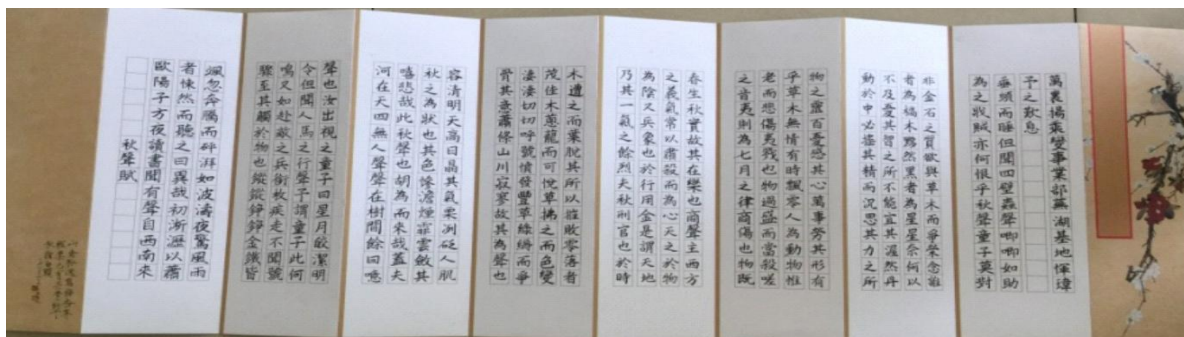 秋聲賦
歐陽子方夜讀書聞有聲自西南來
者悚然而聽之曰異哉初淅瀝以蕭
颯忽奔騰而砰湃如波濤夜驚風雨
驟至其觸於物也鏦鏦錚錚金鐵皆
鳴又如赴敵之兵銜枚疾走不聞號
令但聞人馬之行聲予謂童子此何
聲也汝出視之童子曰星月皎潔明
河在天四無人聲聲在樹間餘曰噫
嘻悲哉此秋聲也胡為而來哉蓋夫
秋之為狀也其色慘澹煙霏雲斂其
容清明天高日晶其氣栗冽砭人肌
骨其意蕭條山川寂寥故其為聲也
淒淒切切呼號憤發豐草綠縟而爭
茂佳木蔥籠而可悅草拂之而色變
木遭之而葉脫其所以摧敗零落者
乃其一氣之餘烈夫秋刑官也於時
為陰又兵象也於行用金是謂天地
之義氣常以肅殺而為心天之於物
春生秋實故其在樂也商聲主西方
之音夷則為七月之律商傷也物既
老而悲傷夷戮也物過盛而當殺嗟
乎草木無情有時飄零人為動物惟
物之靈百憂感其心萬事勞其形有
動於中必搖其精而況思其力之所
不及憂其智之所不能宜其渥然丹
者為槁木黟然黑者為星星奈何以
非金石之質欲與草木而爭榮念誰
為之戕賊亦何恨乎秋聲童子莫對
垂頭而睡但聞四壁蟲聲唧唧如助
予之歎息
萬裏揚乘變事業部蕪湖基地惲煒